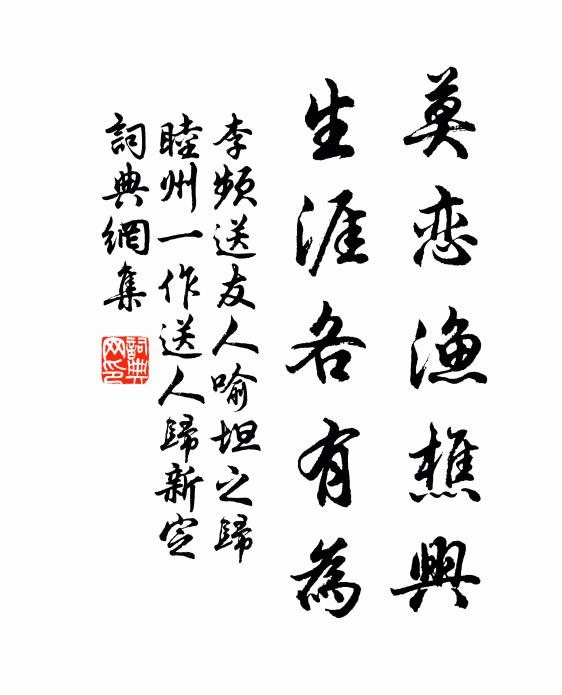 莫恋漁樵興
生涯各有為
李频送友人喻坦之歸
睦州一作送人歸新定
詞典網集
詞典网印